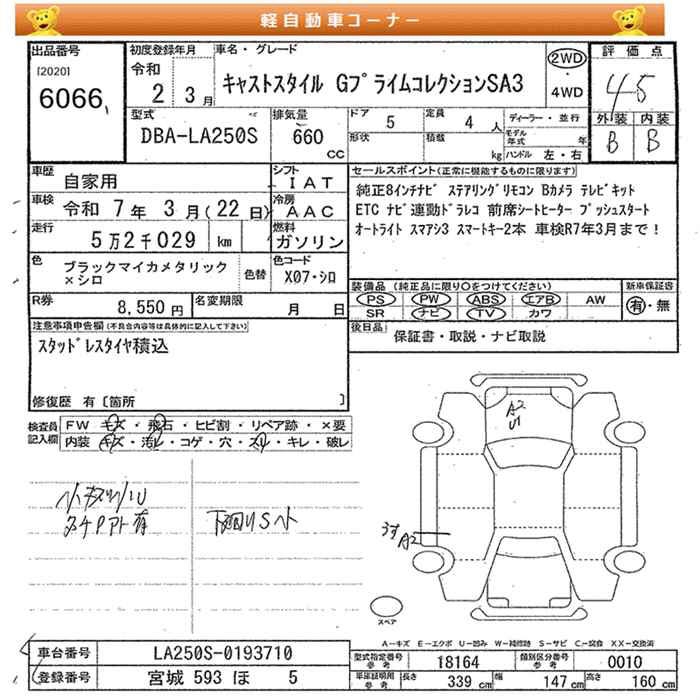 軽自動車コーナー
出品番号
[2020]
6066
初度登録年月
令和
2 3月
車名・グレード
キャストスタイル GプライムコレクションSA3
2WD
・
4WD
評価点
4.5
外装 内装
B B
型式
DBA-LA250S
排気量
660
CC
ドア 5
定員 4 人
形状
積載 kg
ディーラー・並行
モデル年式 年
ハンドル 左・右
車歴 自家用
シフト IAT
車検 令和 7年 3月(22日)
冷房 AAC
走行 5万2千029 km
燃料 ガソリン
色 ブラックマイカメタリック
×シロ
色替
色コード
X07・シロ
R券 8,550円
名変期限 月 日
セールスポイント(正常に機能するものに限ります)
純正8インチナビ ステアリングリモコン Bカメラ テレビキット
ETC ナビ連動ドラレコ 前席シートヒーター プッシュスタート
オートライト スマアシ3 スマートキー2本 車検R7年3月まで!
装備品 (純正品に限り○をつけてください)
PS PW ABS エアB AW
SR ナビ TV カワ
新車保証書
有・無
後日品
保証書・取説・ナビ取説
注意事項申告欄(不具合内容等は具体的に記入して下さい)
スタッドレスタイヤ積込
修復歴 有〔箇所 〕
検査員
記入欄
FW キズ・飛石・ヒビ割・リペア跡・×要
内装 キズ・汚レ・コゲ・穴・スレ・キレ・破レ
小キズ小U
タチPアト有
下廻りS小
A2
U1
うす
A2
スペア
A-キズ E-エクボ U-凹み W-補修跡 S-サビ C-腐食 XX-交換済
車台番号 LA250S-0193710
登録番号 宮城 593 ほ 5
型式指定番号
参考
18164
類別区分番号
参考
0010
車庫証明用
参考
長さ 339 cm
幅 147 cm
高さ 160 cm